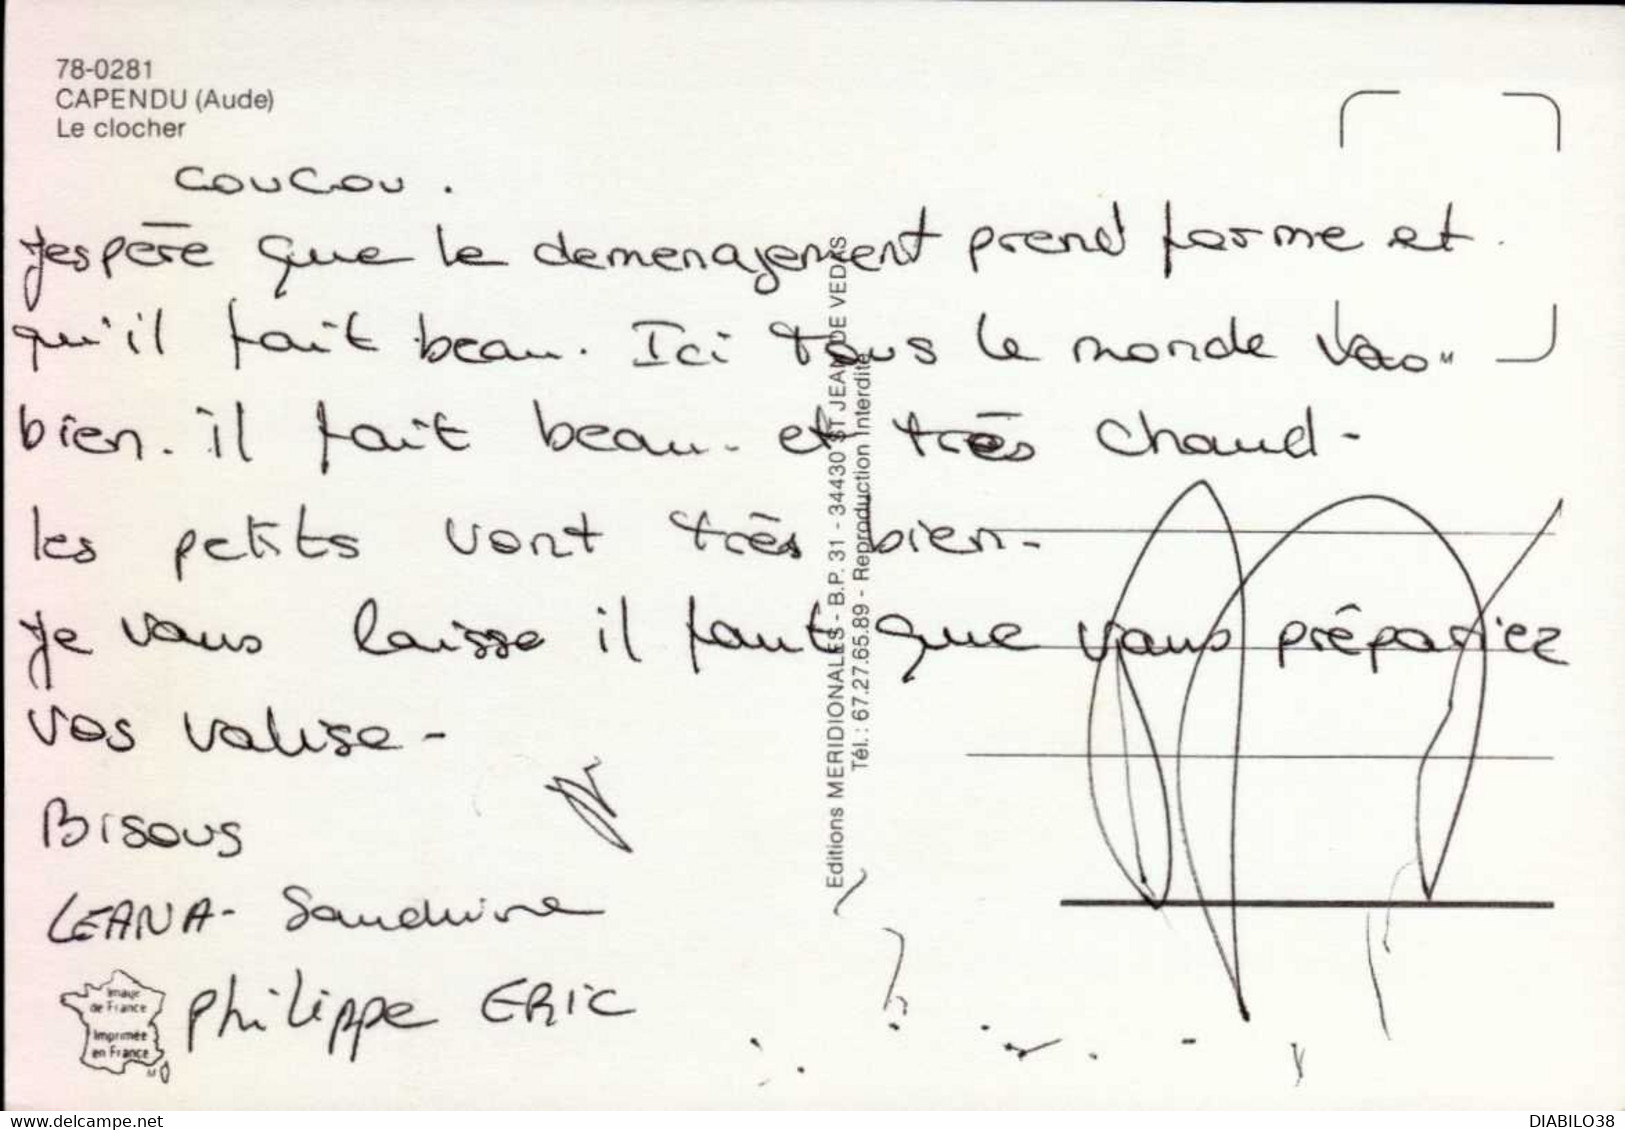 78-0281
CAPENDU (Aude)
Le clocher
coucou.
Jespère que le demenagement prend forme et
qu'il fait beau. Ici tous le monde va
bien. il fait beau. et très chaud-
les petits vont très bien-
Je vous laisse il faut que vous prépariez
vos valise-
Bisous
LEANA- Sandrine
Philippe ERIC
Editions MERIDIONALES - B.P. 31 - 34430 ST JEAN DE VEDAS
Tél.: 67.27.65.89 - Reproduction Interdite
Image
de France
Imprimée
en France
www.delcampe.net
DIABILO38